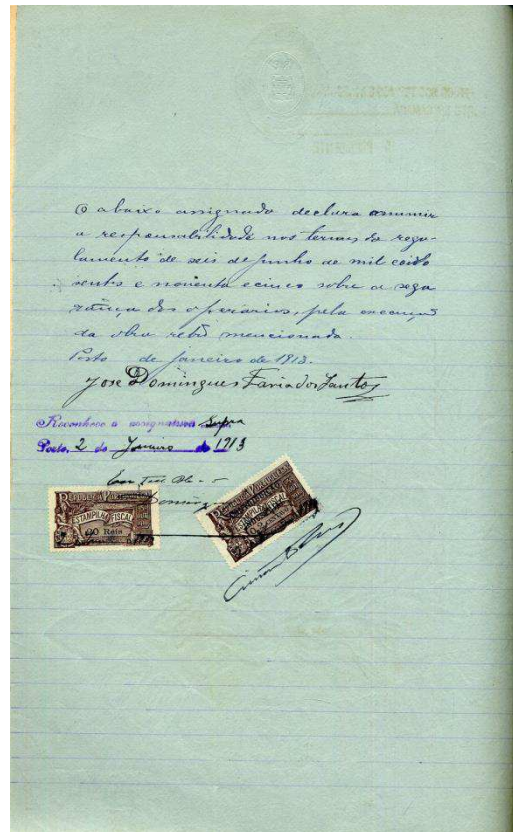 O abaixo assignado declara assumir
a responsabilidade nos termos do regu-
lamento de seis de Junho de mil oitó
centos e noventa e cinco sobre a segu
rança dos operarios, pela execução
da obra retrò mencionada.
Porto de Janeiro de 1913.
José Domingues Faria dos Santos
Reconheço a assignatura supra
Porto, 2 de Janeiro de 1913
REPUBLICA PORTUGUESA
ESTAMPILHA FISCAL
Reis
ESTAMPILHA FISCAL